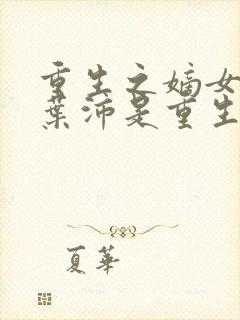 重生之嫡女
葉沛是重生
夏華